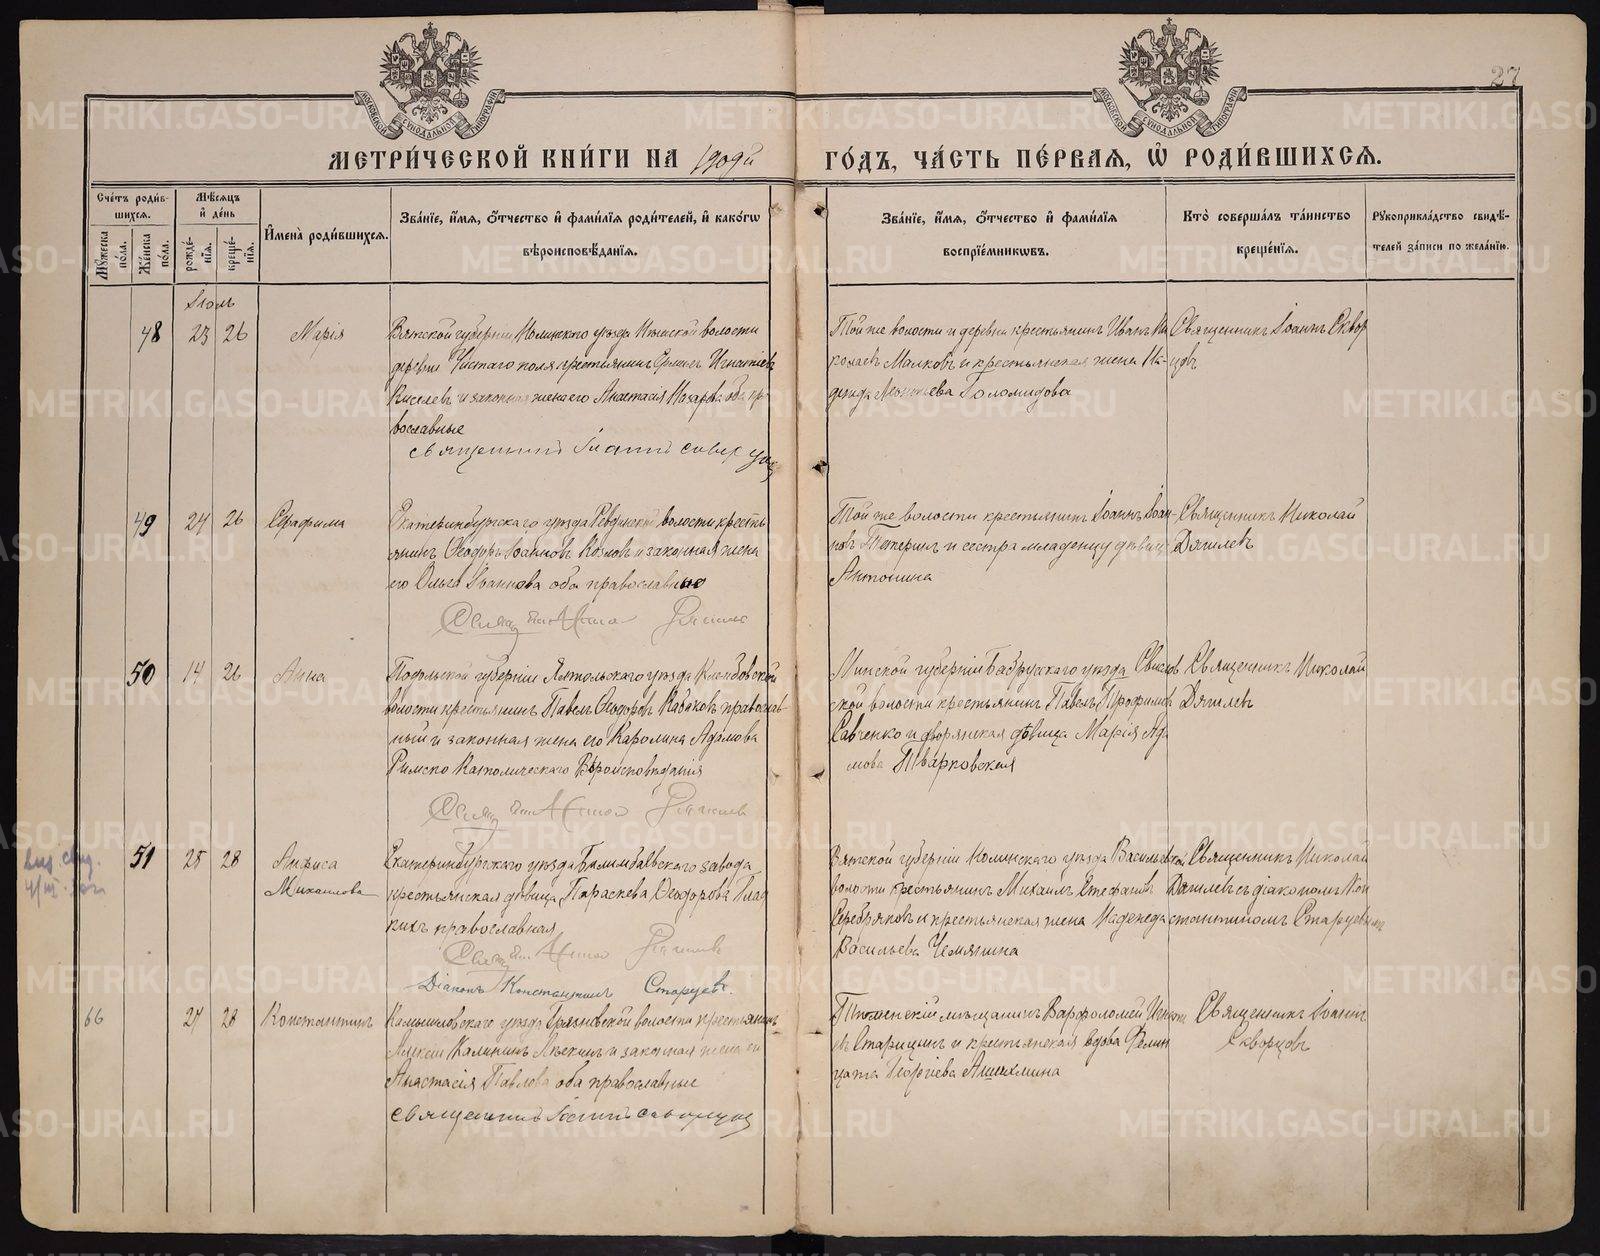 27
МОСКОВСКОЙ СѴНОДАЛЬНОЙ ТИПОГРАФІИ
МОСКОВСКОЙ СѴНОДАЛЬНОЙ ТИПОГРАФІИ
МЕТРИ́ЧЕСКОЙ КНИ́ГИ НА
ГО́ДЪ, ЧА́СТЬ ПЕ́РВАЯ, Ѡ҆ РОДИ́ВШИХСѦ.
Сче́тъ роди́в-
шихсѧ.
Мꙋ́жеска по́ла.
Же́нска по́ла.
Мѣ́сѧцъ и҆ де́нь
рожде́нїѧ.
креще́нїѧ.
И҆мена̀ роди́вшихсѧ.
Зва́нїе, и҆́мѧ, ѻ҆́тчество и҆ фами́лїѧ роди́телей, и҆ како́гѡ
вѣроисповѣ́данїѧ.
Зва́нїе, и҆́мѧ, ѻ҆́тчество и҆ фами́лїѧ
воспрїе́мникѡвъ.
Кто̀ соверша́лъ та́инство
креще́нїѧ.
Рꙋкоприкла́дство свидѣ́-
телей за́писи по жела́нїю.
Іюль
48 23 26 Марія
Вятской губерніи Нолинскаго уѣзда волости
деревни Чистаго поля крестьянинъ Игнатіевъ
Киселевъ и законная жена его Анастасія Назарова оба пра
вославные
Священникъ Іоаннъ Скворцовъ
Той же волости и деревни крестьянинъ Иванъ Ни
колаевъ Малковъ и крестьянская жена На-
дежда Леонтьева Голомидова
Священникъ Іоаннъ Сквор
цовъ
49 24 26 Серафима
Екатеринбургскаго уѣзда Ревдинской волости кресть
янинъ Ѳеодоръ Іоанновъ Козловъ и законная жена
его Ольга Іоаннова оба православные
Той же волости крестьянинъ Іоаннъ Іоан-
новъ Тетеринъ и сестра младенцу дѣвица
Антонина
Священникъ Николай
Дягилевъ
50 14 26 Анна
Подольской губерніи Ямпольскаго уѣзда Клембовской
волости крестьянинъ Павелъ Ѳеодоровъ Кабаковъ православ-
ный и законная жена его Каролина Адамова
Римско Католическаго Вѣроисповѣданія
Минской губерніи Бобруйскаго уѣзда Свислоч
ской волости крестьянинъ Павелъ Трофимовъ
Савченко и дворянская дѣвица Марія Ада
мова Тварковская
Священникъ Николай
Дягилевъ
51 25 28 Анѳиса
Михайлова
Екатеринбургскаго уѣзда Билимбаевскаго завода
крестьянская дѣвица Параскева Ѳеодорова Глад
кихъ православная
Діаконъ Константинъ Старцевъ.
Вятской губерніи Нолинскаго уѣзда Васильевской
волости крестьянинъ Михаилъ Стефановъ
Серебряковъ и крестьянская жена Надежда
Васильева Чемякина
Священникъ Николай
Дягилевъ съ діакономъ Кон
стантиномъ Старцевымъ
66 27 28 Константинъ
Камышловскаго уѣзда Грязновской волости крестьянинъ
Алексій Калининъ и законная жена его
Анастасія Павлова оба православные
Священникъ Іоаннъ Скворцовъ
Тюменскій мѣщанинъ Варфоломей
Старицынъ и крестьянская вдова Фелиц
цата Георгіева
Священникъ Іоаннъ
Скворцовъ
METRIKI.GASO-URAL.RU